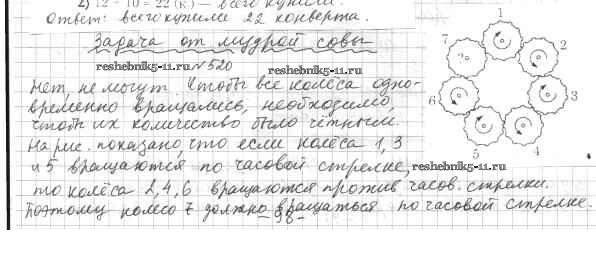 2) 12 + 10 = 22 (к) — всего купили.
Ответ: всего купили 22 конверта.
Задача от мудрой совы
reshebnik5-11.ru № 520 reshebnik5-11.ru
Нет, не могут. Чтобы все колёса одно-
временно вращались, необходимо,
чтобы их количество было чётным.
На рис. показано, что если колёса 1, 3
и 5 вращаются по часовой стрелке, reshebnik5-11.ru
то колёса 2, 4, 6 вращаются против часов. стрелки.
Поэтому колесо 7 должно вращаться по часовой стрелке.
– 98 –
1
7
2
6
3
5
4